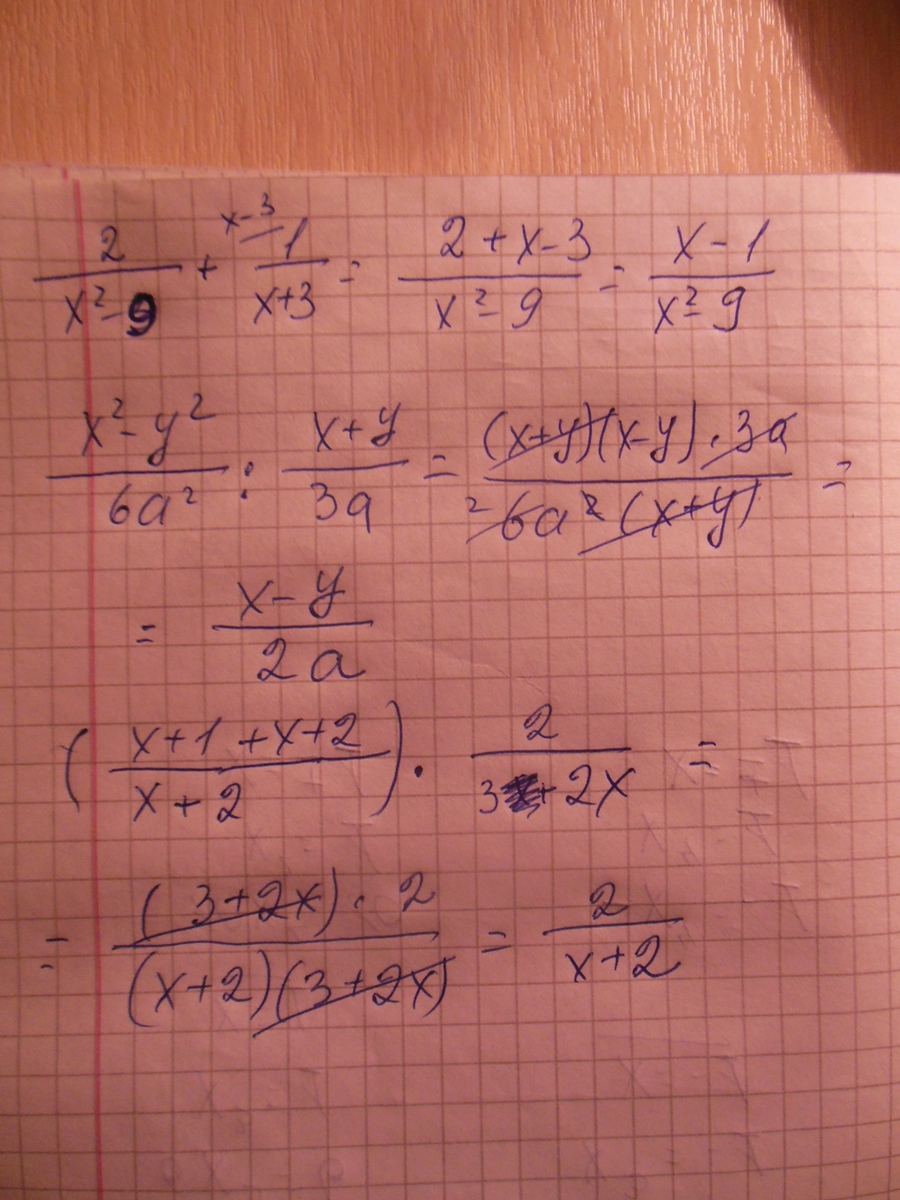 2/(x²-9) + (x-3) 1/(x+3) = (2+x-3)/(x²-9) = (x-1)/(x²-9)
(x²-y²)/(6a²) : (x+y)/(3a) = ((x+y)(x-y)·3a)/(2 6a² (x+y)) =
= (x-y)/(2a)
((x+1+x+2)/(x+2)) · 2/(3+2x) =
= ((3+2x)·2)/((x+2)(3+2x)) = 2/(x+2)